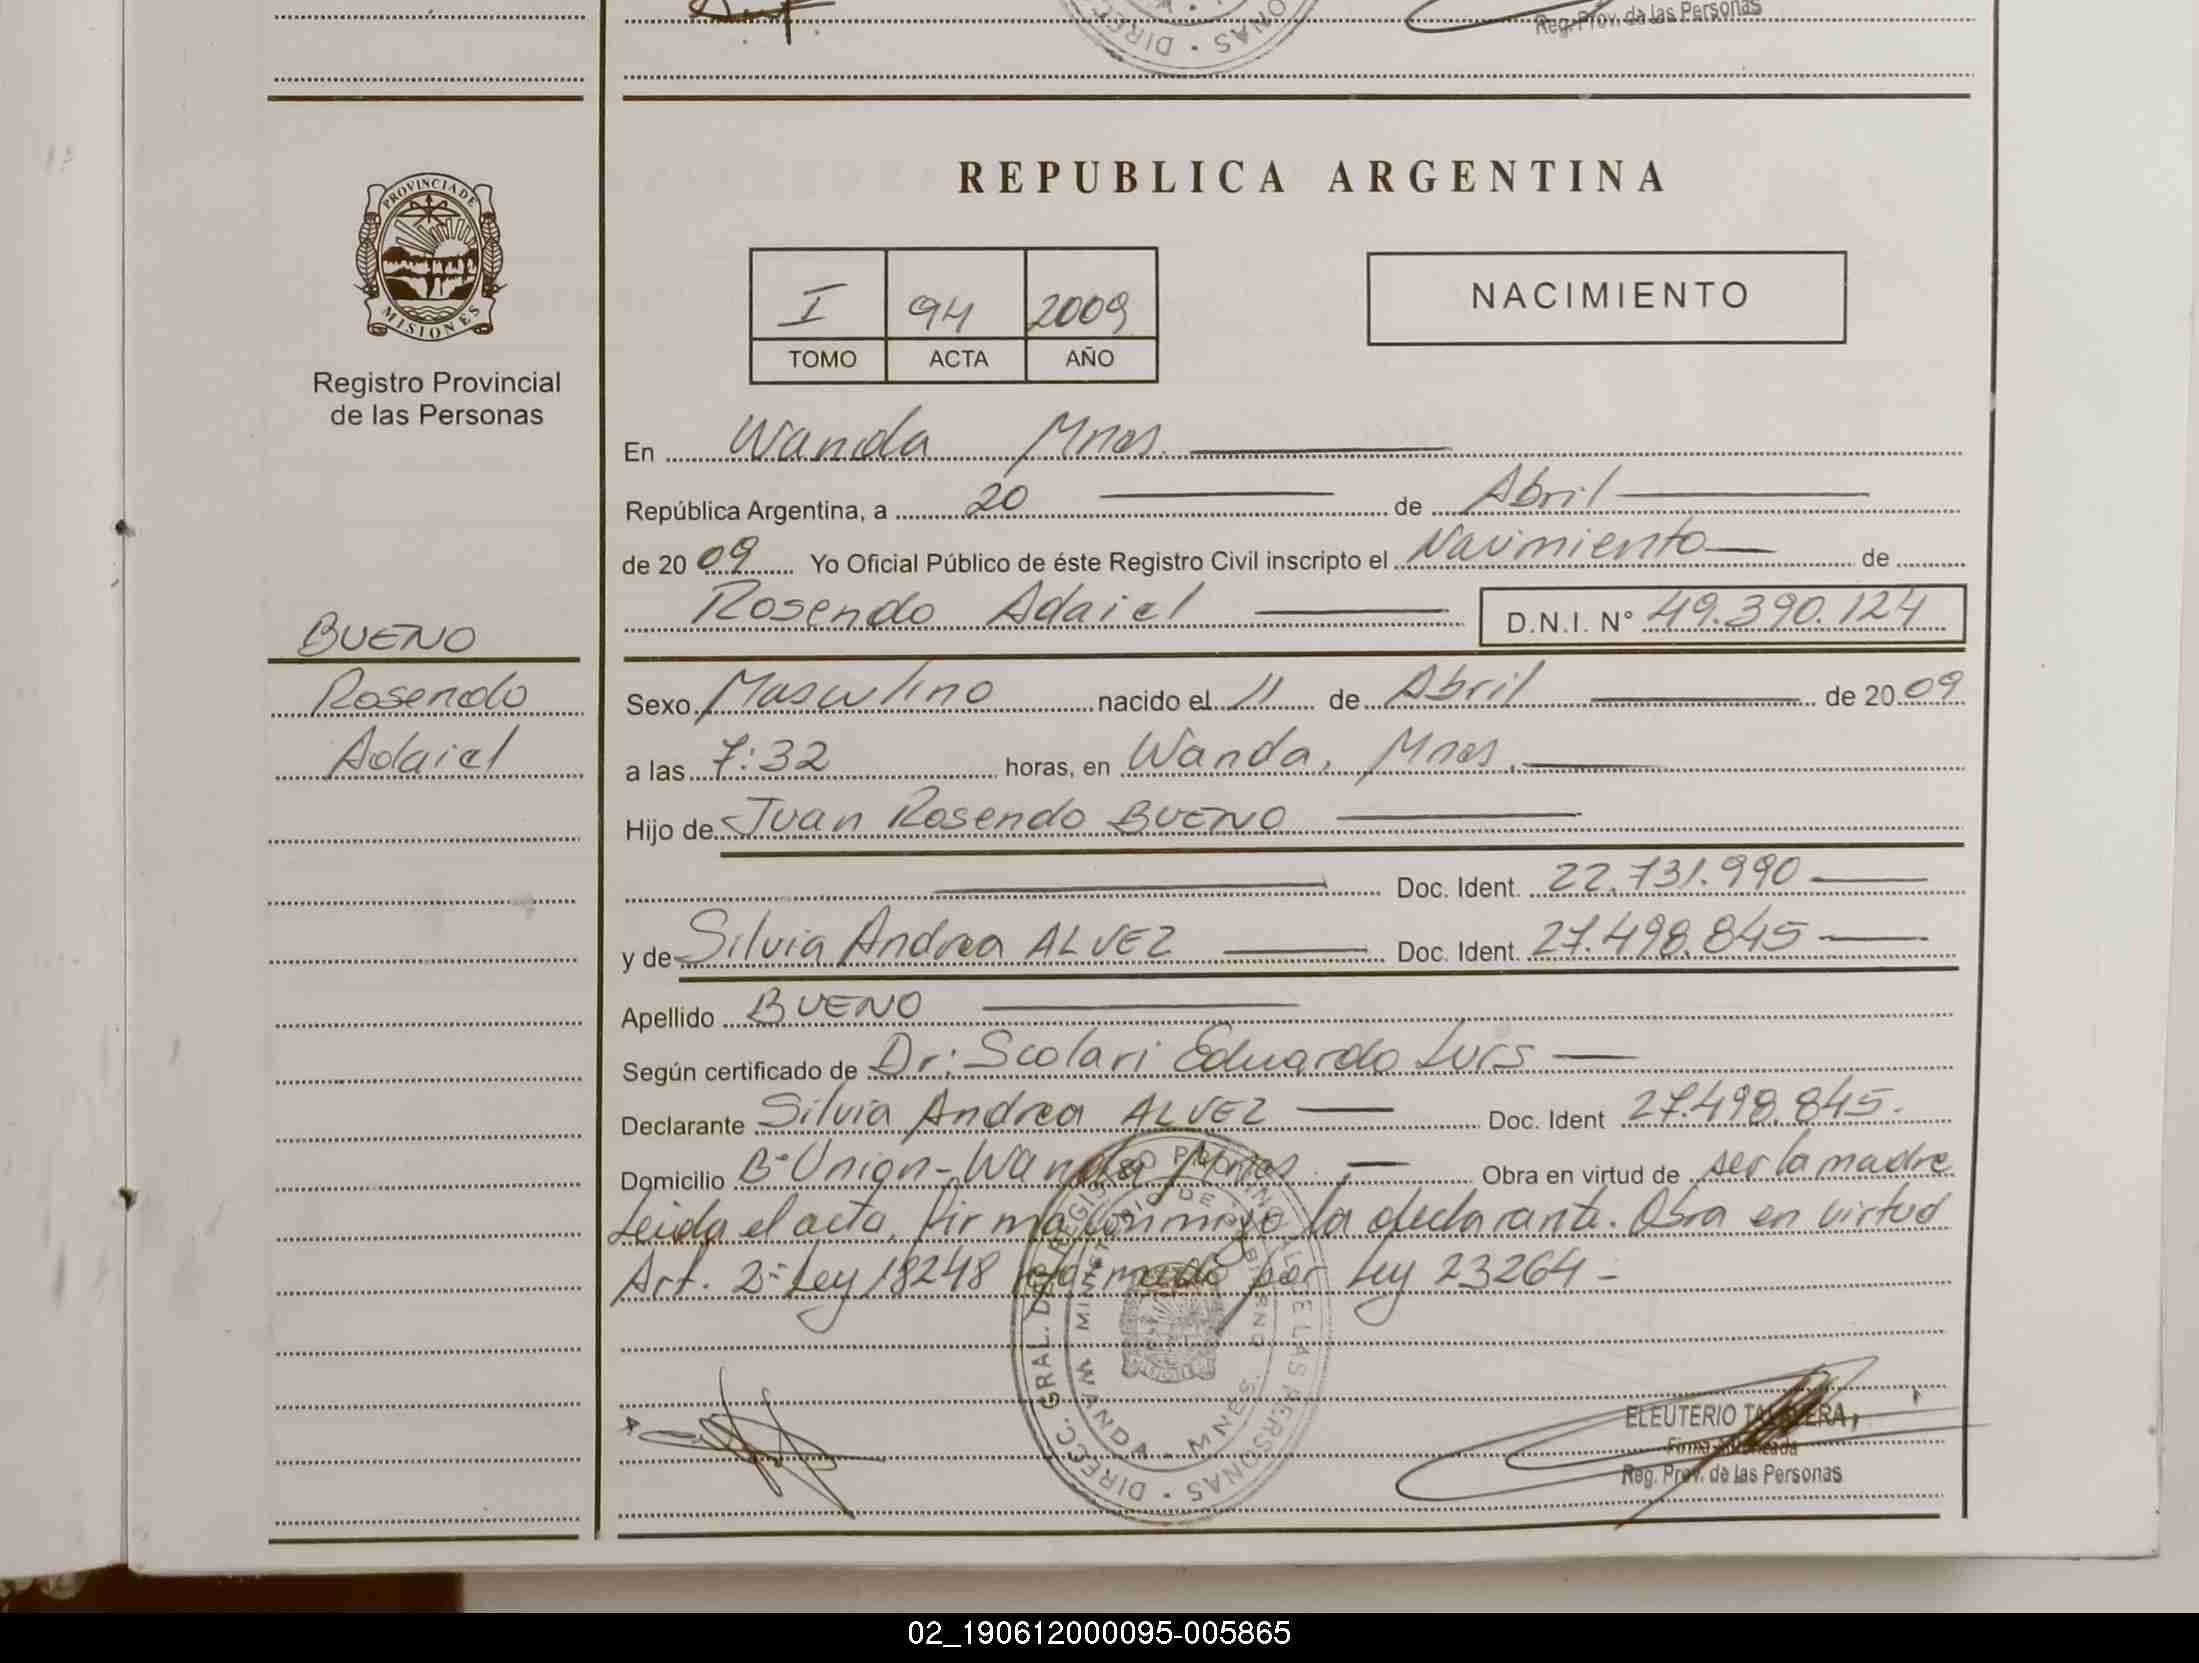 Reg. Prov. de las Personas
DIRECC
ONAS
REPUBLICA ARGENTINA
PROVINCIA DE MISIONES
Registro Provincial
de las Personas
I 94 2009
TOMO ACTA AÑO
NACIMIENTO
En Wanda Mnes.
República Argentina, a 20 de Abril
de 2009 Yo Oficial Público de éste Registro Civil inscripto el Nacimiento de
Rosendo Adaiel D.N.I. N° 49.390.124
BUENO
Rosendo
Adaiel
Sexo Masculino nacido el 11 de Abril de 2009
a las 7:32 horas, en Wanda, Mnes.
Hijo de Juan Rosendo BUENO
Doc. Ident. 22.731.990
y de Silvia Andrea ALVEZ Doc. Ident. 27.498.845
Apellido BUENO
Según certificado de Dr: Scolari Eduardo Luis
Declarante Silvia Andrea ALVEZ Doc. Ident 27.498.845.
Domicilio B° Union - Wanda Mnes. Obra en virtud de ser la madre
Leida el acta, firma conmigo la declarante. Obra en virtud
Art. 2= Ley 18248 por Ley 23264 -
DIRECC. GRAL. DEL REGISTRO PROVINCIAL DE LAS PERSONAS
MINISTERIO DE GOBIERNO
WANDA - MNES.
ELEUTERIO TALAVERA
Firma Autorizada
Reg. Prov. de las Personas
02_190612000095-005865